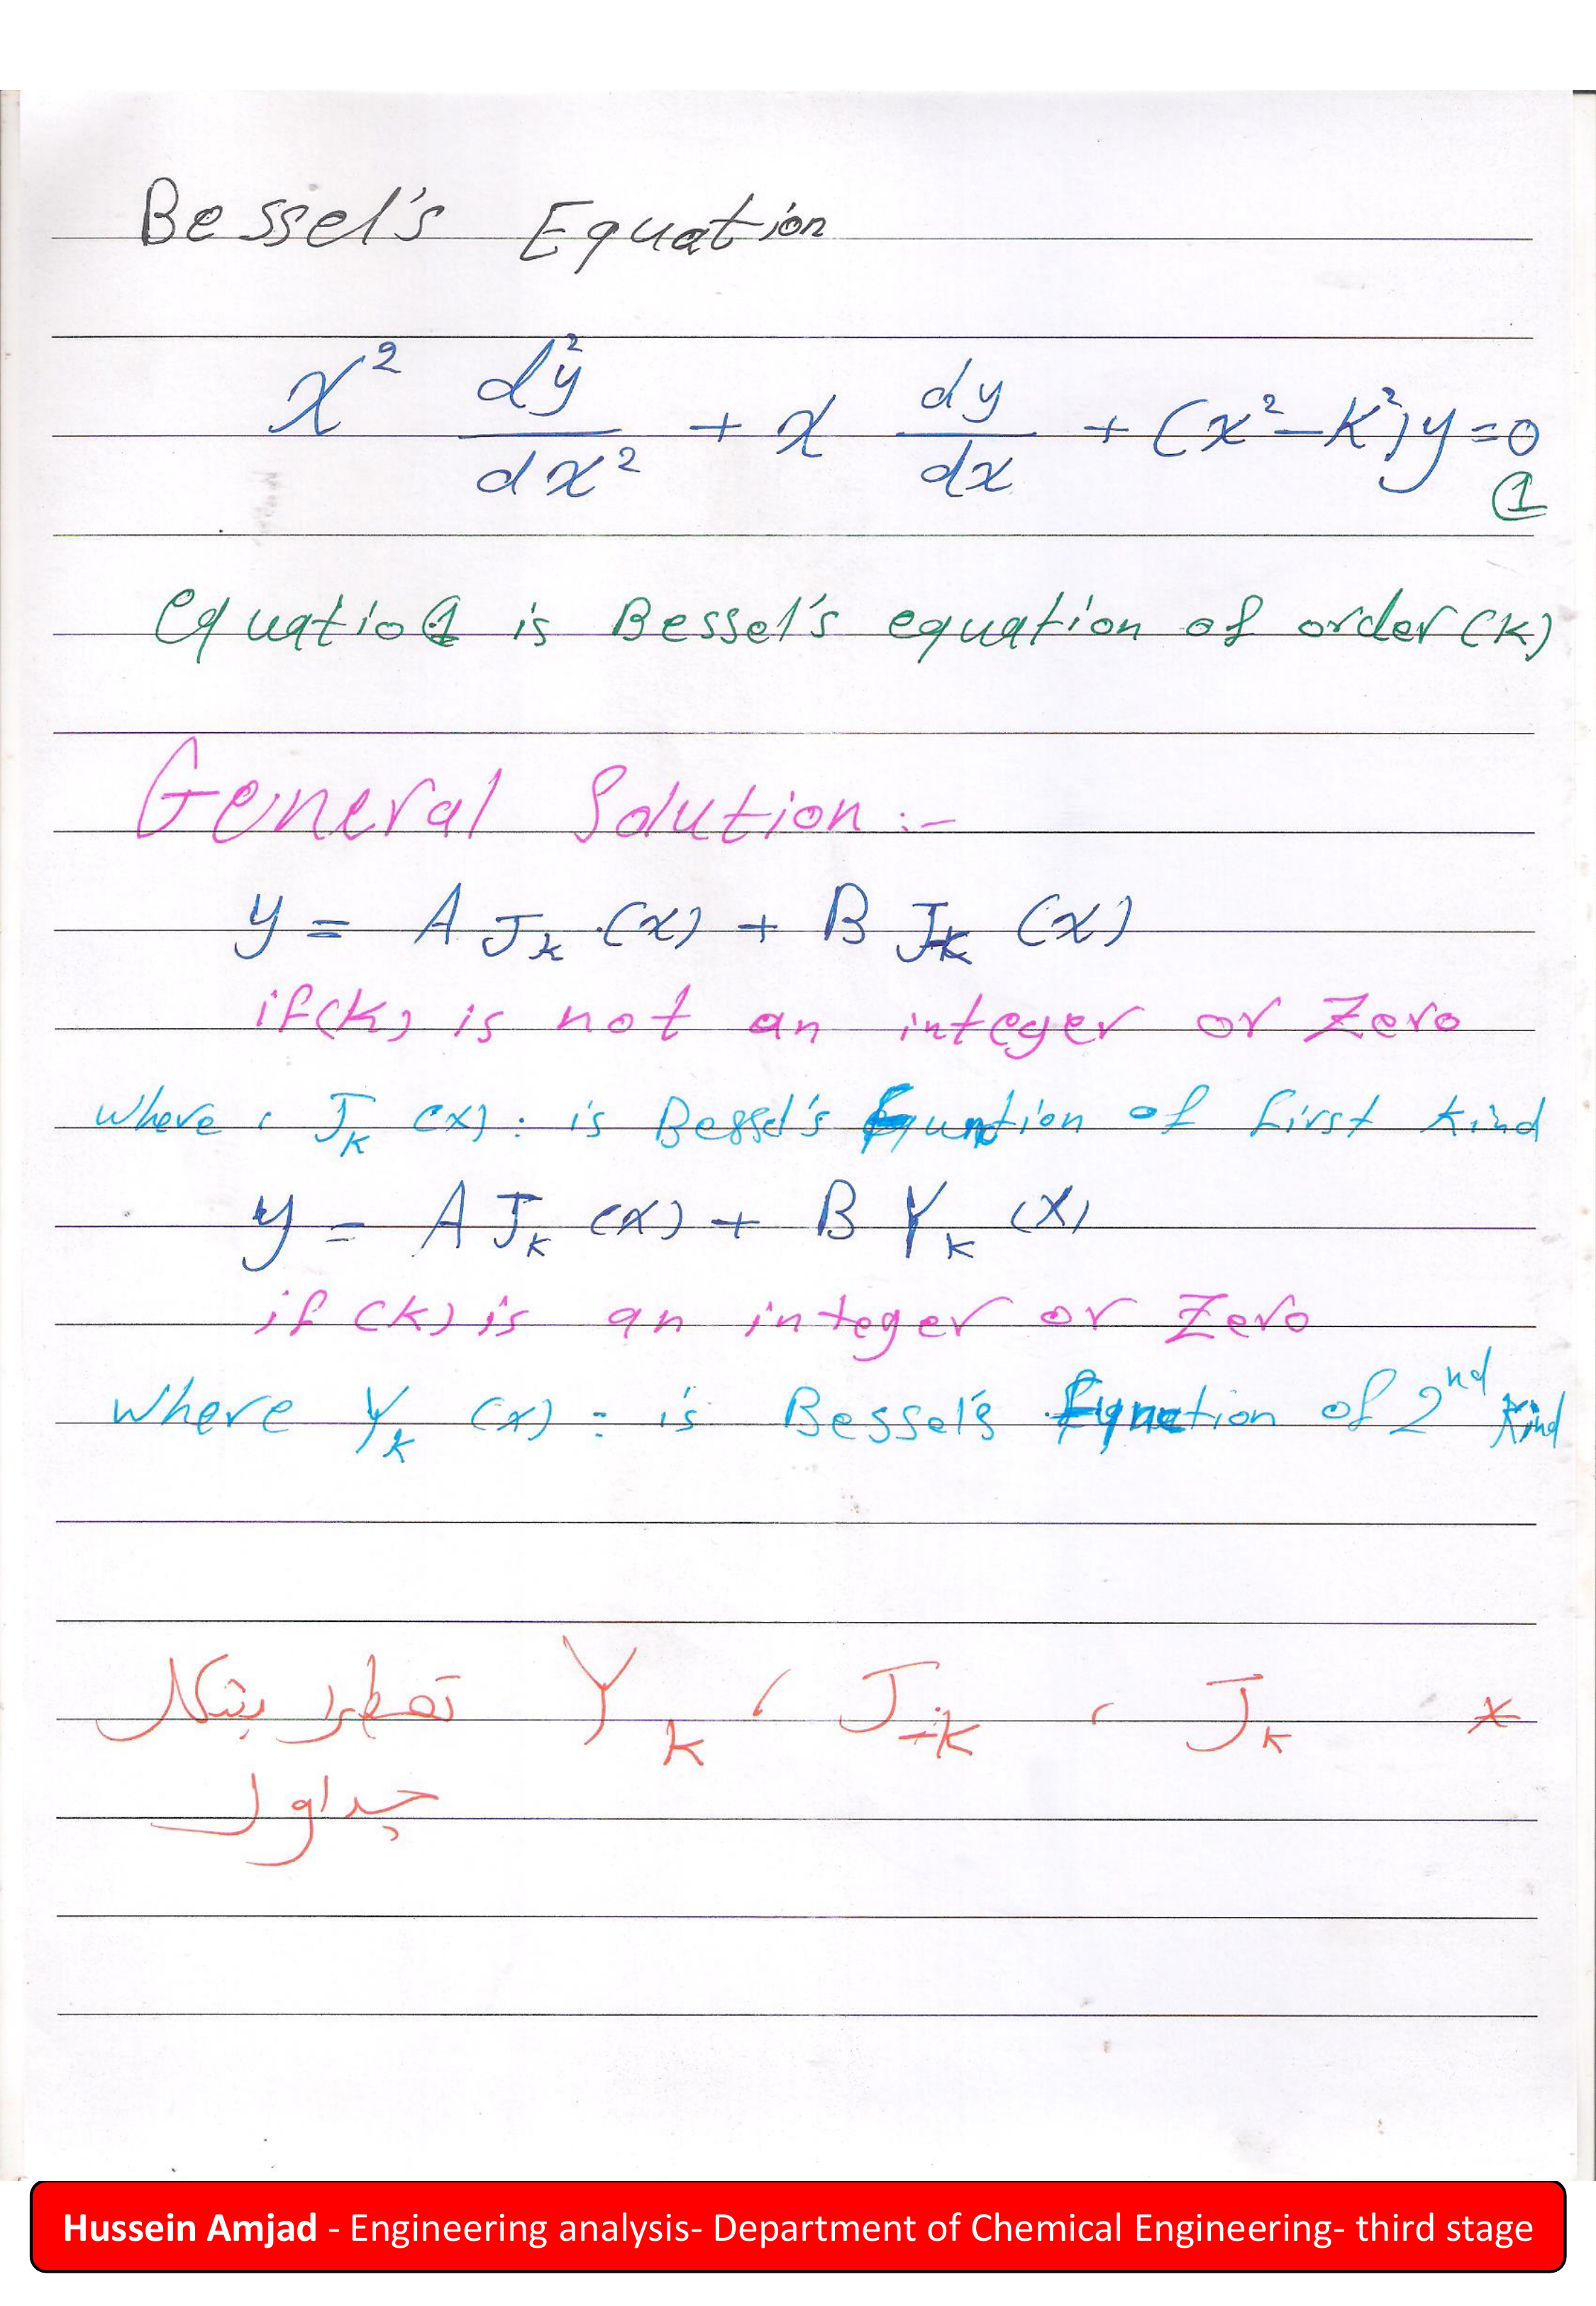 Bessel's Equation
x² d²y/dx² + x dy/dx + (x² - K²) y = 0
①
equatio① is Bessel's equation of order (K)
General Solution :-
y = A J_k (x) + B J_-k (x)
if (K) is not an integer or Zero
where , J_k (x) : is Bessel's Function of first kind
y = A J_k (x) + B Y_k (x)
if (K) is an integer or Zero
where Y_k (x) : is Bessel's Function of 2nd Kind
* J_k ، J_-k ، Y_k تعطى بشكل
جداول
Hussein Amjad - Engineering analysis- Department of Chemical Engineering- third stage